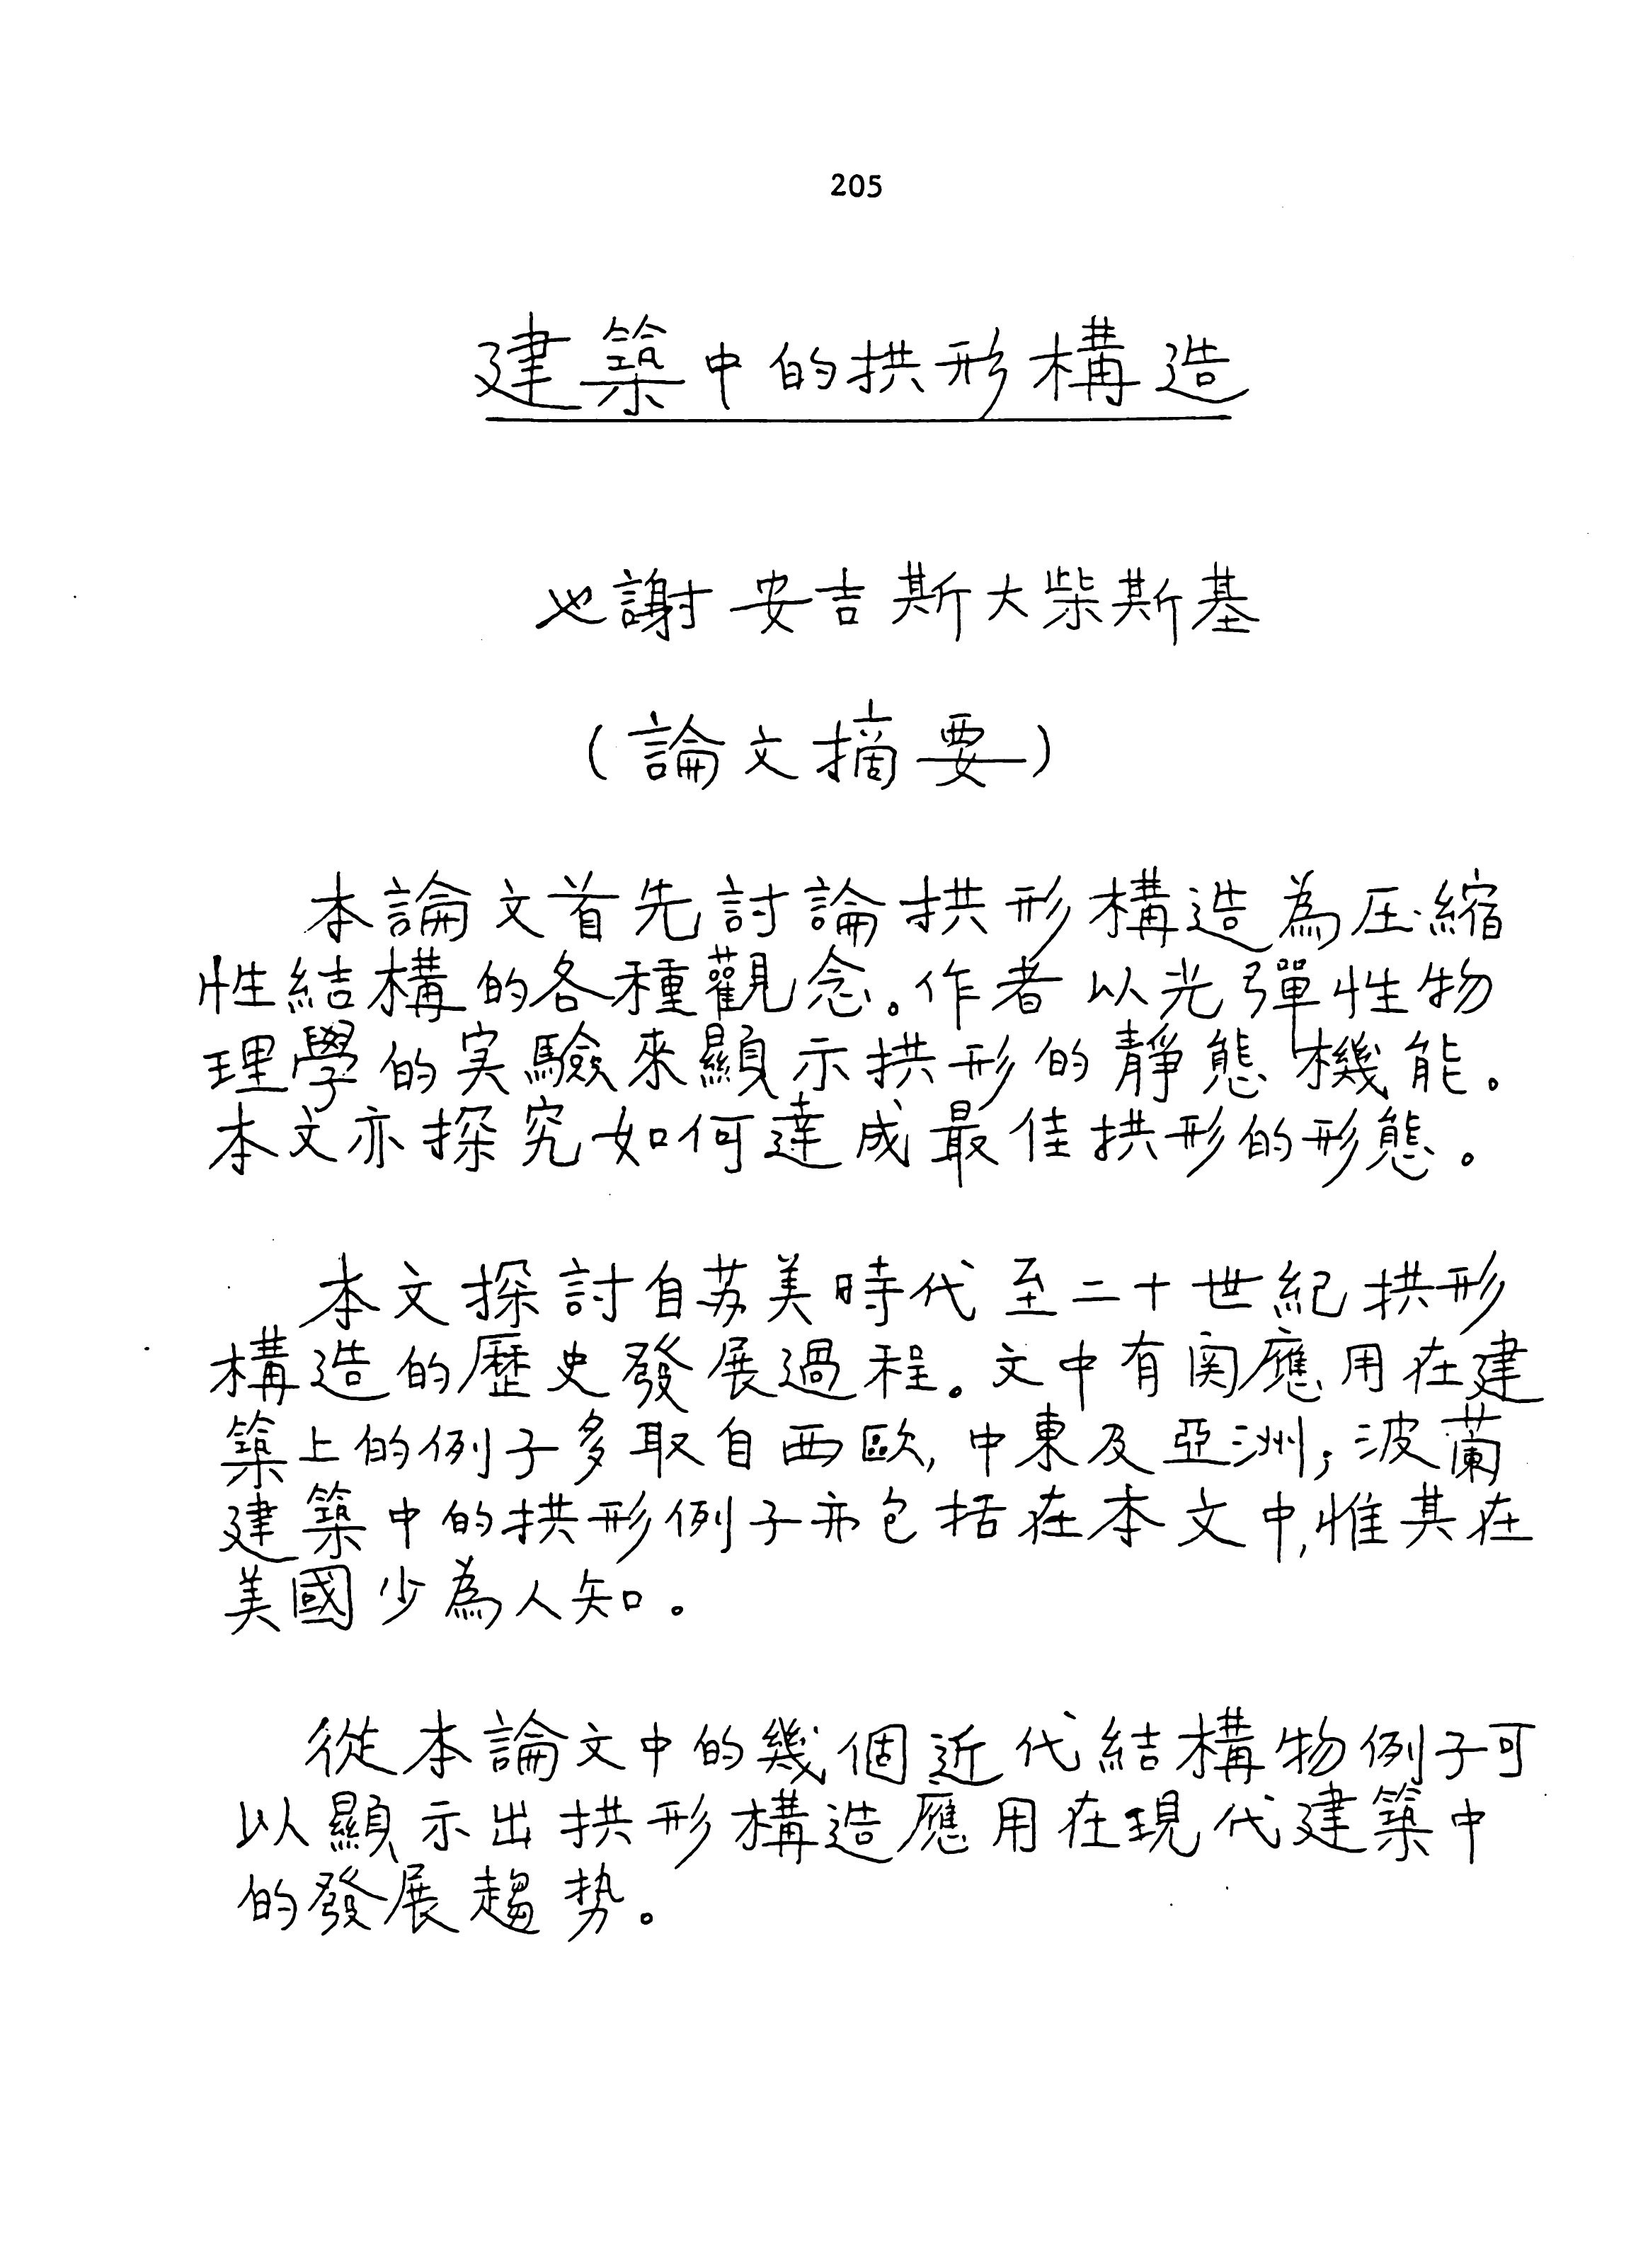 205
建築中的拱形構造
也謝 安吉斯大柴斯基
(論文摘要)
本論文首先討論拱形構造為圧縮
性結構的各種觀念。作者以光彈性物
理學的実驗來顯示拱形的靜態機能。
本文亦探究如何達成最佳拱形的形態。
本文探討自苏美時代至二十世紀拱形
構造的歷史發展過程。文中有関應用在建
築上的例子多取自西歐,中東及亞洲;波蘭
建築中的拱形例子亦包括在本文中,惟其在
美國少為人知。
從本論文中的幾個近代結構物例子可
以顯示出拱形構造應用在現代建築中
的發展趨势。